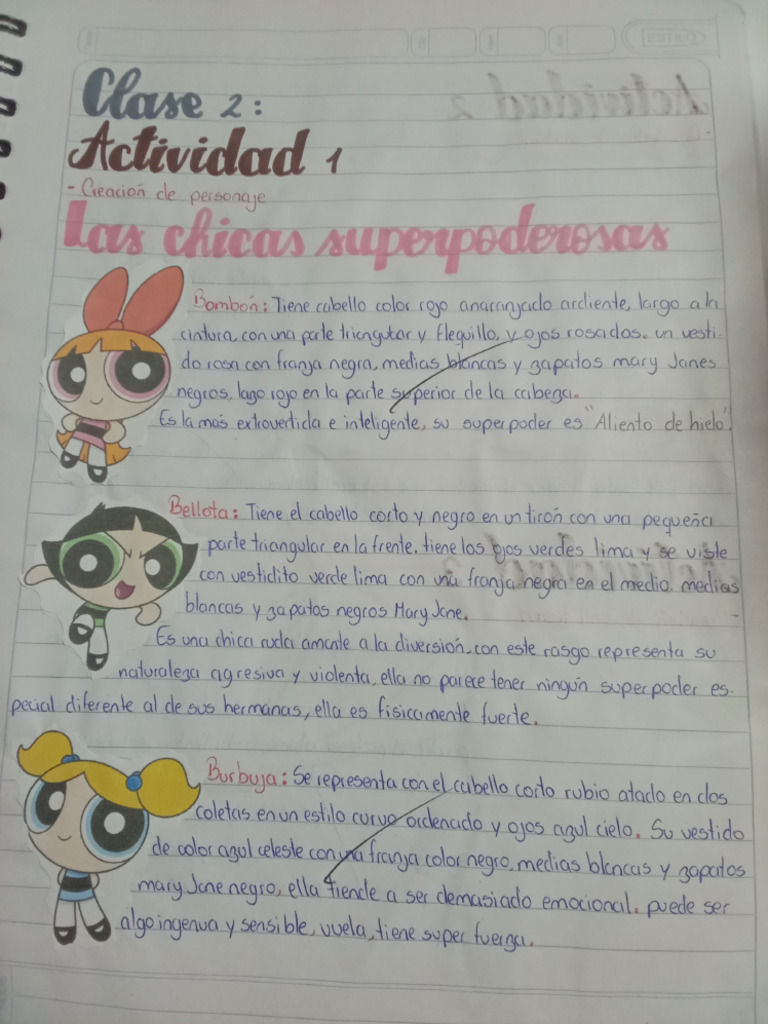 ESTILO
Clase 2:
Actividad 1
- Creación de personaje
Las chicas superpoderosas
Bombón: Tiene cabello color rojo anaranjado ardiente, largo a la
cintura, con una parte triangular y flequillo, y ojos rosados. un vesti-
do rosa con franja negra, medias blancas y zapatos mary Janes
negros, lago rojo en la parte superior de la cabeza.
Es la más extrovertida e inteligente, su superpoder es "Aliento de hielo".
Bellota: Tiene el cabello corto y negro en un tirón con una pequeña
parte triangular en la frente. tiene los ojos verdes lima y se viste
con vestidito verde lima con una franja negra en el medio. medias
blancas y zapatos negros Mary Jane.
Es una chica ruda amante a la diversión, con este rasgo representa su
naturaleza agresiva y violenta, ella no parece tener ningún superpoder es-
pecial diferente al de sus hermanas, ella es fisicamente fuerte.
Burbuja: Se representa con el cabello corto rubio atado en dos
coletas en un estilo curvo ordenado y ojos azul cielo. Su vestido
de color azul celeste con una franja color negro, medias blancas y zapatos
mary Jane negro, ella tiende a ser demasiado emocional. puede ser
algo ingenua y sensible, vuela, tiene super fuerza.